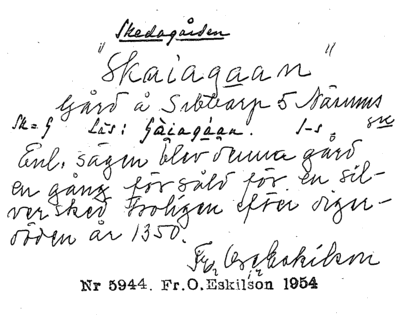 Skedagården
"Skaiagaan"
Gård å Sibbarp 5 Näsums
Sk=G Läs: Gàiagàan. 1-s sn
Enl. sägen blev denna gård
en gång försåld för en sil-
versked troligen efter diger-
döden år 1350.
Fr. O. Eskilson
Nr 5944. Fr.O.Eskilson 1954